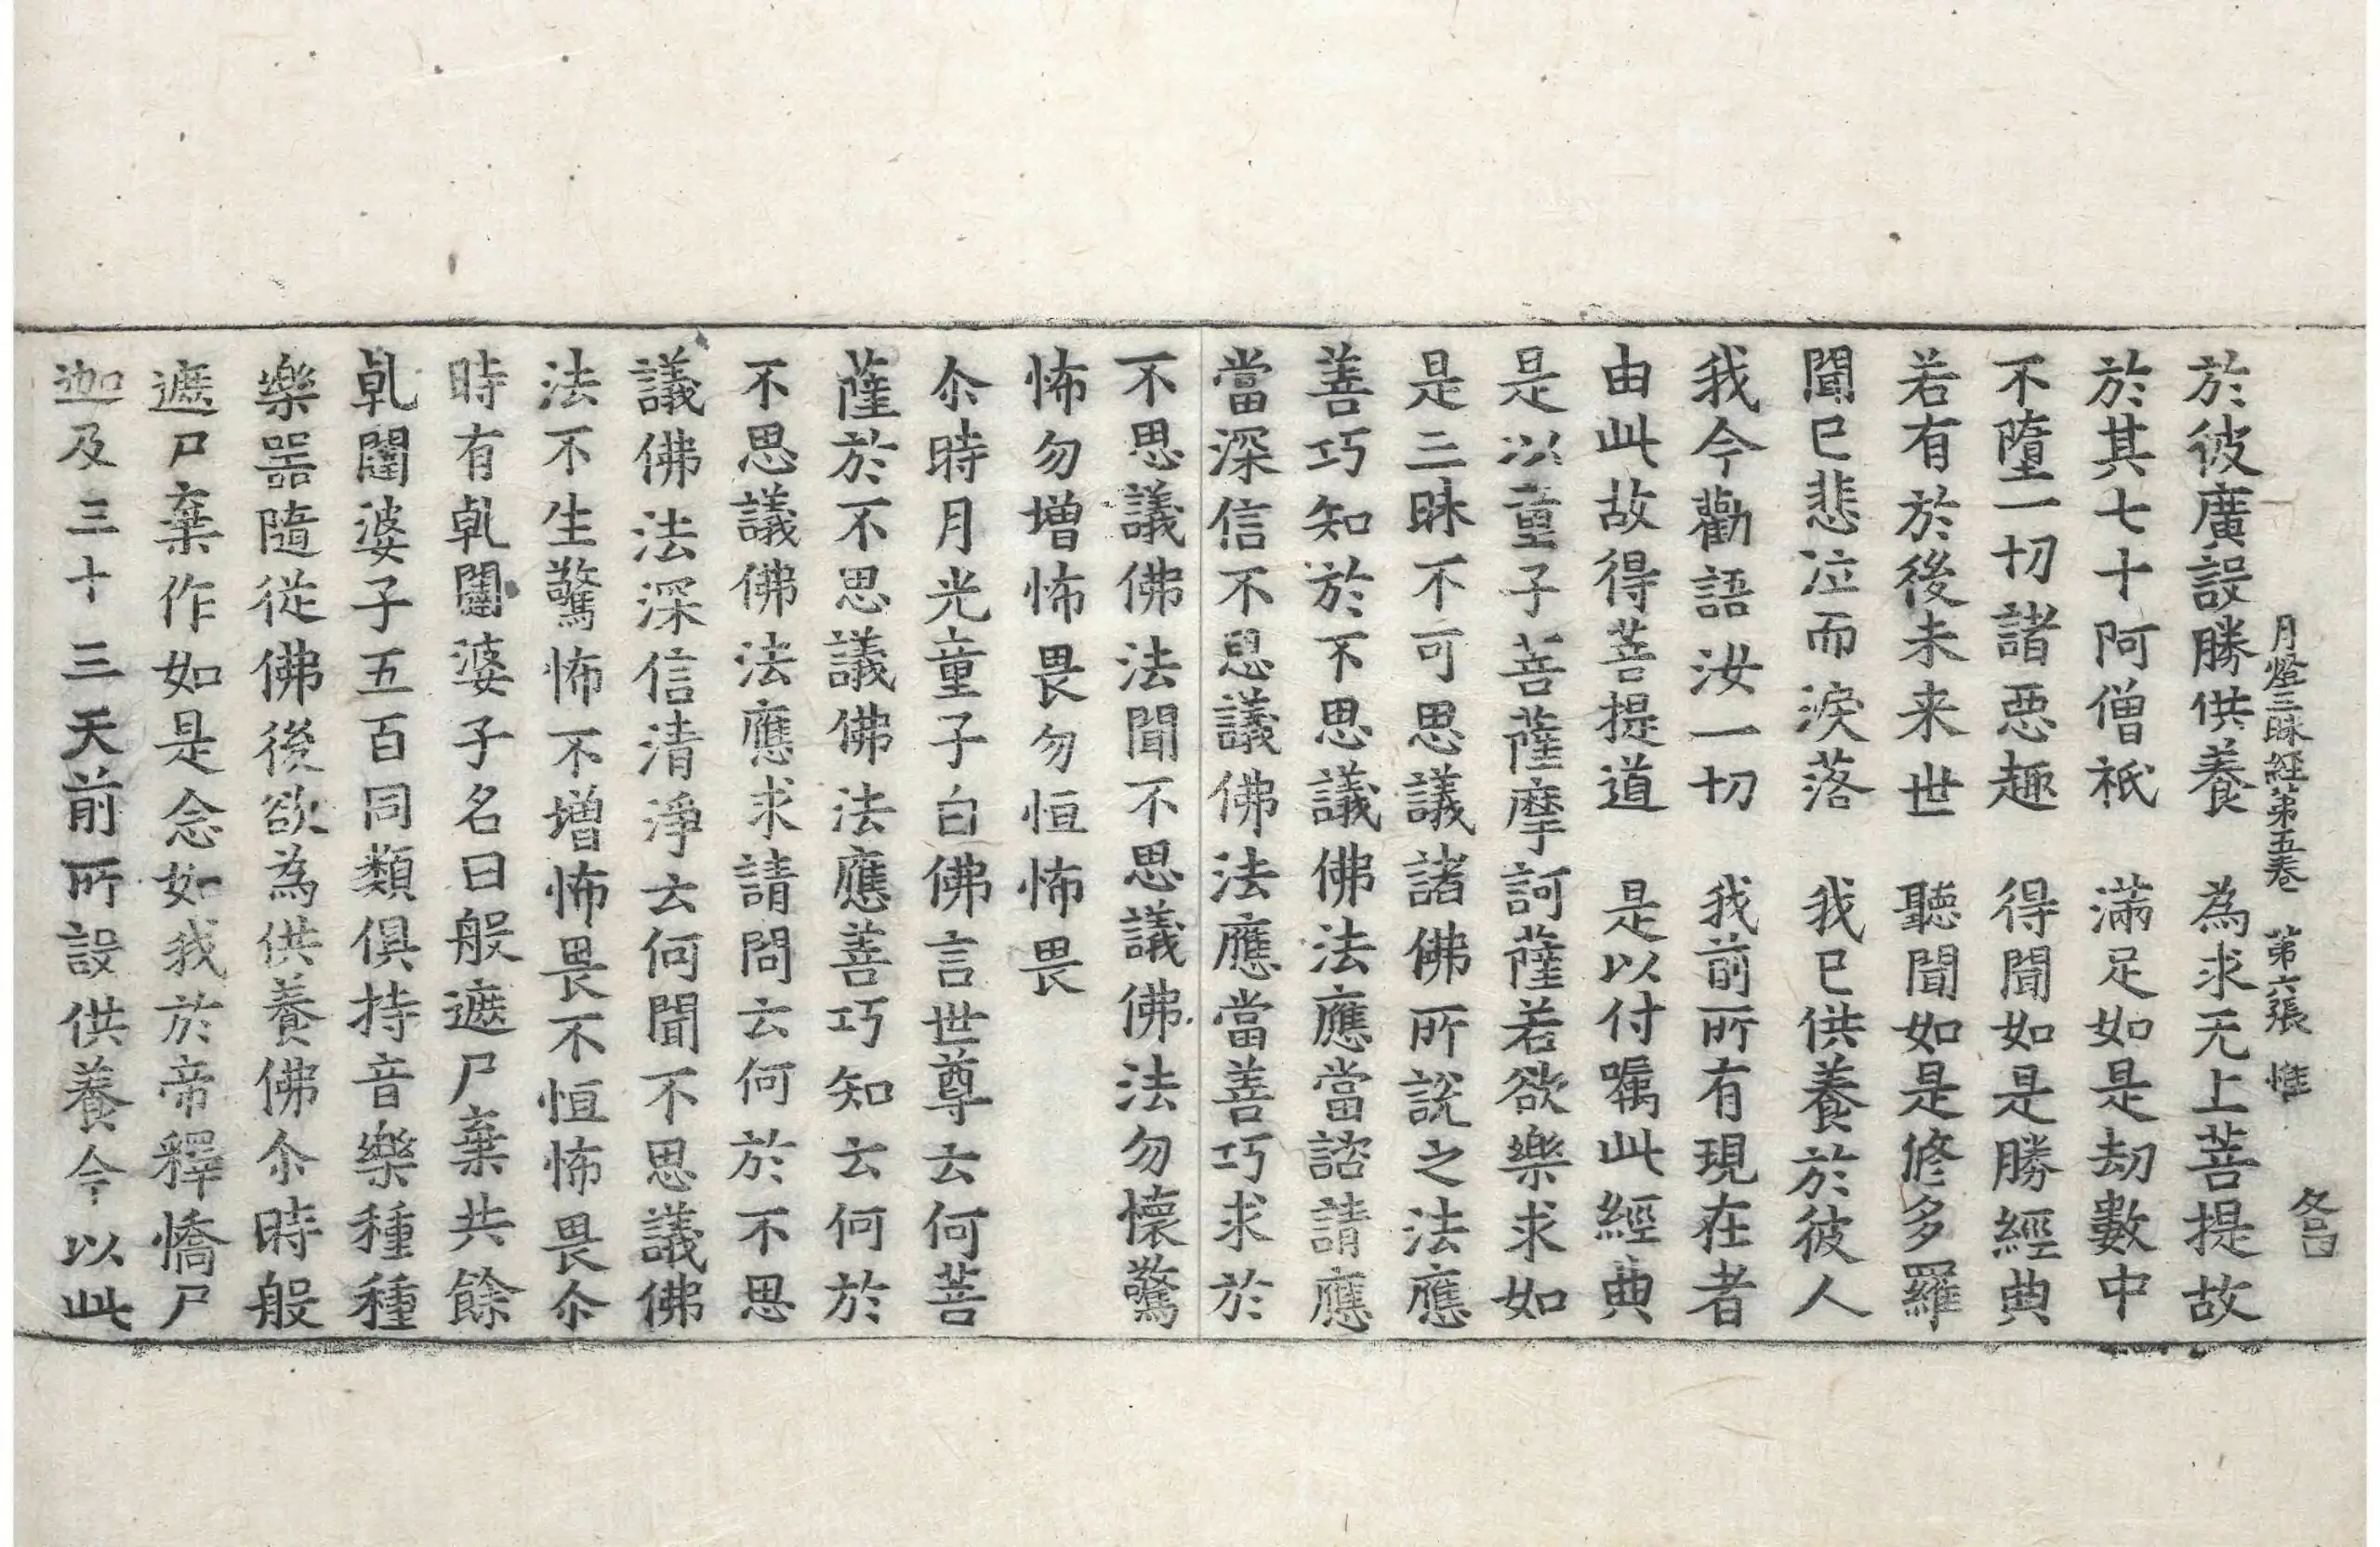 月燈三昧經第五卷 第六張 惟
於彼廣設勝供養 為求无上菩提故
於其七十阿僧祇 滿足如是劫數中
不墮一切諸惡趣 得聞如是勝經典
若有於後未来世 聽聞如是修多羅
聞已悲泣而淚落 我已供養於彼人
我今勸語汝一切 我前所有現在者
由此故得菩提道 是以付嘱此經典
是以童子菩薩摩訶薩若欲樂求如
是三昧不可思議諸佛所說之法應
善巧知於不思議佛法應當諮請應
當深信不思議佛法應當善巧求於
不思議佛法聞不思議佛法勿懷驚
怖勿增怖畏勿恒怖畏
尒時月光童子白佛言世尊云何菩
薩於不思議佛法應善巧知云何於
不思議佛法應求請問云何於不思
議佛法深信清淨云何聞不思議佛
法不生驚怖不增怖畏不恒怖畏尒
時有乹闥婆子名曰般遮尸棄共餘
乹闥婆子五百同類俱持音樂種種
樂器隨從佛後欲為供養佛尒時般
遮尸棄作如是念如我於帝釋憍尸
迦及三十三天前所設供養今以此